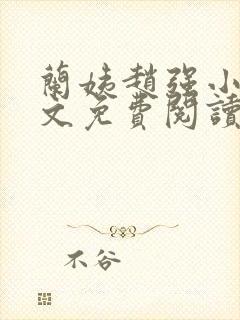 蘭姨趙強小
文免費閱讀
不谷